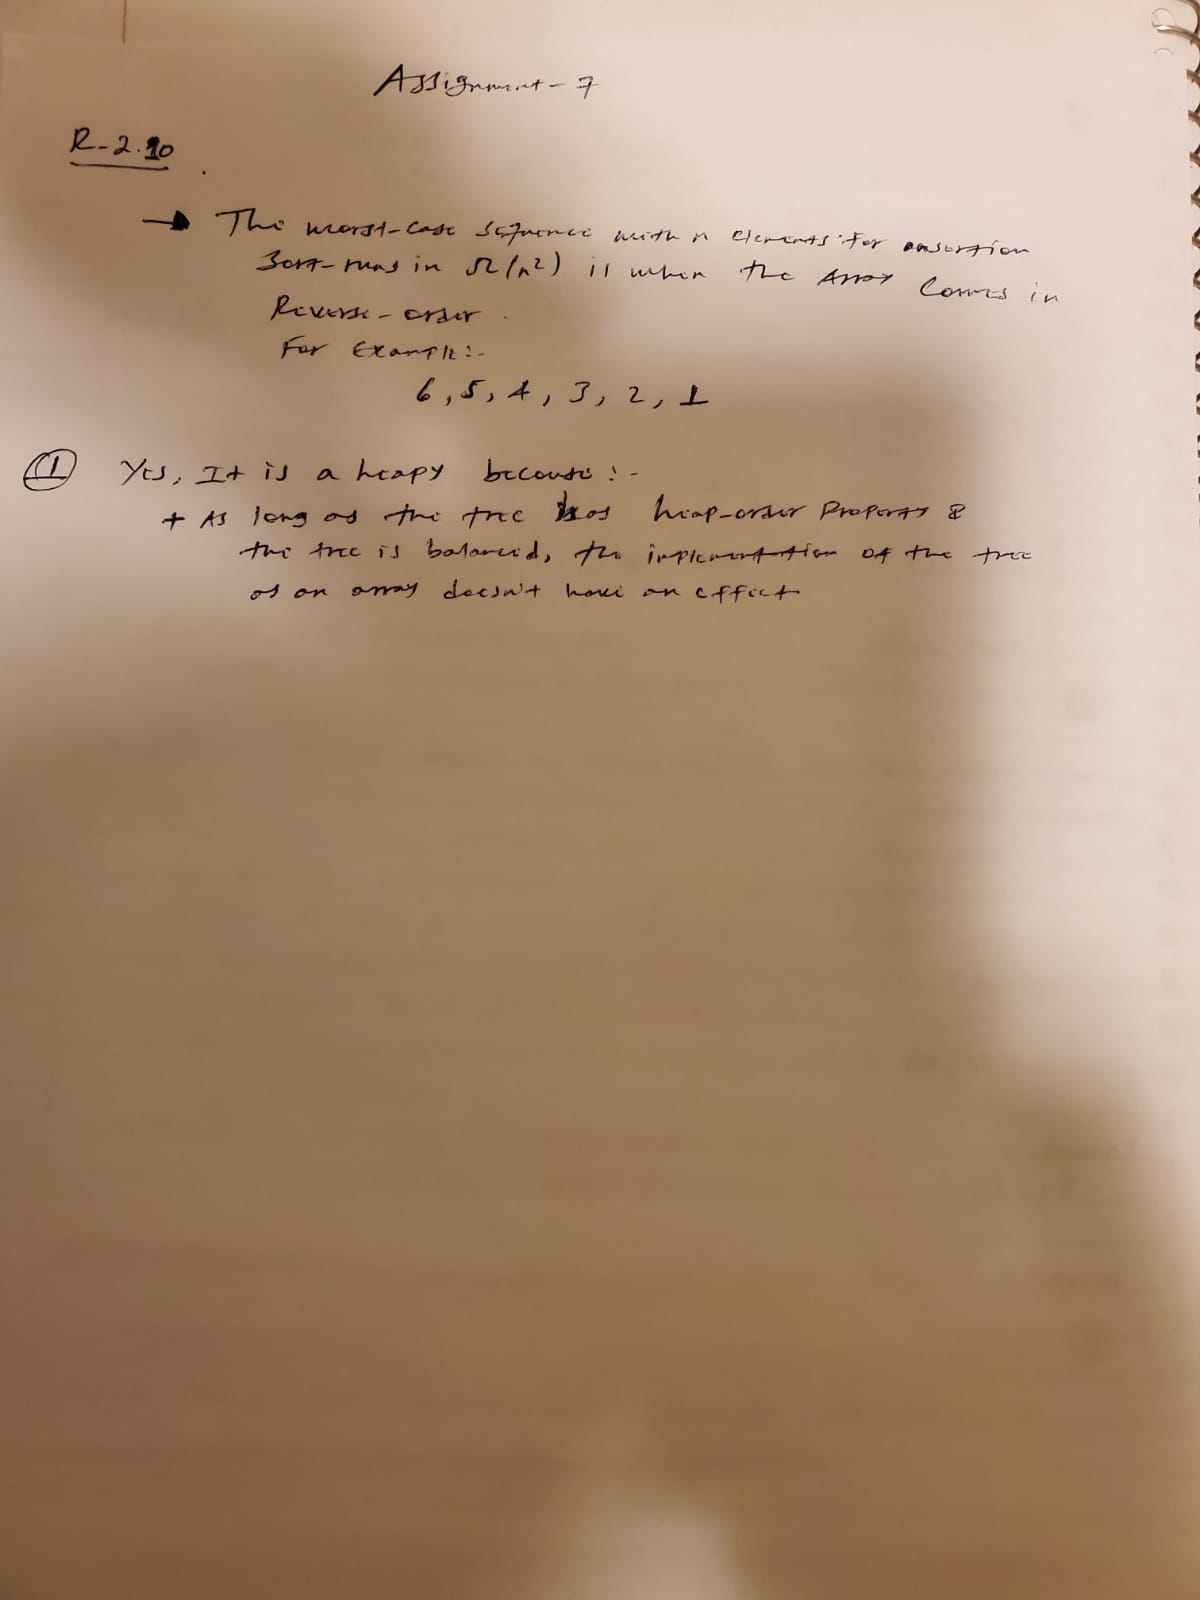 Assignment - 7
R-2.10
→ The worst-case sequence with n elements for insertion
Sort-runs in Ω(n²) is when the Array Comes in
Reverse-order.
For Example:-
6, 5, 4, 3, 2, 1
① Yes, It is a heapy because:-
+ As long as the tree has heap-order Property &
the tree is balanced, the implementation of the tree
as an array doesn't have an effect